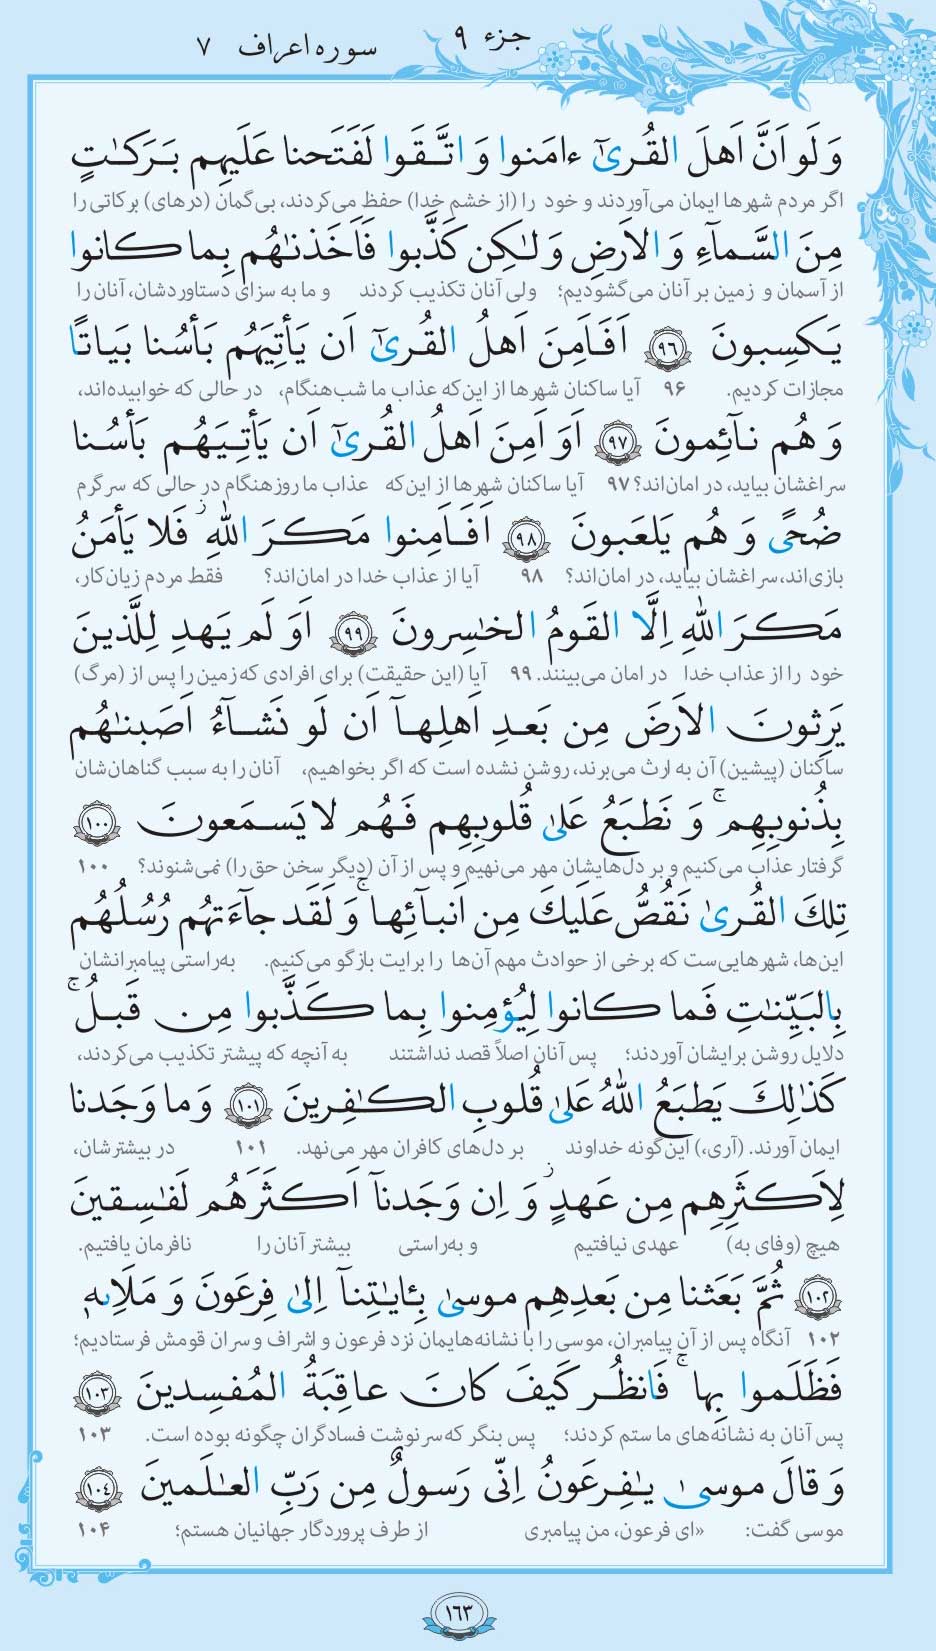 جزء ۹
سوره اعراف ۷
وَ لَو اَنَّ اَهلَ القُرىٰٓ ءامَنوا وَ اتَّقَوا لَفَتَحنا عَلَيهِم بَرَكـٰتٍ
اگر مردم شهرها ایمان می‌آوردند و خود را (از خشم خدا) حفظ می‌کردند، بی‌گمان (درهای) برکاتی را
مِنَ السَّمآءِ وَ الاَرضِ وَ لـٰكِن كَذَّبوا فَاَخَذنـٰهُم بِما كانوا
از آسمان و زمین بر آنان می‌گشودیم؛ ولی آنان تکذیب کردند و ما به سزای دستاوردشان، آنان را
يَكسِبونَ ﴿۹۶﴾ اَفَاَمِنَ اَهلُ القُرىٰٓ اَن يَأتِيَهُم بَأسُنا بَياتًا
مجازات کردیم. ۹۶ آیا ساکنان شهرها از این‌که عذاب ما شب‌هنگام، در حالی که خوابیده‌اند،
وَ هُم نآئِمونَ ﴿۹۷﴾ اَوَ اَمِنَ اَهلُ القُرىٰٓ اَن يَأتِيَهُم بَأسُنا
سراغشان بیاید، در امان‌اند؟ ۹۷ آیا ساکنان شهرها از این‌که عذاب ما روزهنگام در حالی که سرگرم
ضُحًى وَ هُم يَلعَبونَ ﴿۹۸﴾ اَفَاَمِنوا مَكرَ اللّٰهِ ۚ فَلا يَأمَنُ
بازی‌اند، سراغشان بیاید، در امان‌اند؟ ۹۸ آیا از عذاب خدا در امان‌اند؟ فقط مردم زیان‌کار،
مَكرَ اللّٰهِ اِلَّا القَومُ الخـٰسِرونَ ﴿۹۹﴾ اَوَ لَم يَهدِ لِلَّذينَ
خود را از عذاب خدا در امان می‌بینند. ۹۹ آیا (این حقیقت) برای افرادی که زمین را پس از (مرگ)
يَرِثونَ الاَرضَ مِن بَعدِ اَهلِهآ اَن لَو نَشآءُ اَصَبنـٰهُم
ساکنان (پیشین) آن به ارث می‌برند، روشن نشده است که اگر بخواهیم، آنان را به سبب گناهان‌شان
بِذُنوبِهِم ۚ وَ نَطبَعُ عَلىٰ قُلوبِهِم فَهُم لا يَسمَعونَ ﴿۱۰۰﴾
گرفتار عذاب می‌کنیم و بر دل‌هایشان مهر می‌نهیم و پس از آن (دیگر سخن حق را) نمی‌شنوند؟ ۱۰۰
تِلكَ القُرىٰ نَقُصُّ عَلَيكَ مِن اَنبآئِها ۚ وَ لَقَد جآءَتهُم رُسُلُهُم
این‌ها، شهرهایی‌ست که برخی از حوادث مهم آن‌ها را برایت بازگو می‌کنیم. به‌راستی پیامبرانشان
بِالبَيِّنـٰتِ فَما كانوا لِيُؤمِنوا بِما كَذَّبوا مِن قَبلُ ۚ
دلایل روشن برایشان آوردند؛ پس آنان اصلاً قصد نداشتند به آنچه که پیشتر تکذیب می‌کردند،
كَذٰلِكَ يَطبَعُ اللّٰهُ عَلىٰ قُلوبِ الكـٰفِرينَ ﴿۱۰۱﴾ وَ ما وَجَدنا
ایمان آورند. (آری،) این‌گونه خداوند بر دل‌های کافران مهر می‌نهد. ۱۰۱ در بیشترشان،
لِاَكثَرِهِم مِن عَهدٍ ۖ وَ اِن وَجَدنآ اَكثَرَهُم لَفـٰسِقينَ
هیچ (وفای به) عهدی نیافتیم و به‌راستی بیشتر آنان را نافرمان یافتیم.
﴿۱۰۲﴾ ثُمَّ بَعَثنا مِن بَعدِهِم موسىٰ بِـٔايـٰتِنآ اِلىٰ فِرعَونَ وَ مَلَاِيهٖ
۱۰۲ آنگاه پس از آن پیامبران، موسی را با نشانه‌هایمان نزد فرعون و اشراف و سران قومش فرستادیم؛
فَظَلَموا بِها ۚ فَانظُر كَيفَ كانَ عاقِبَةُ المُفسِدينَ ﴿۱۰۳﴾
پس آنان به نشانه‌های ما ستم کردند؛ پس بنگر که سرنوشت فسادگران چگونه بوده است. ۱۰۳
وَ قالَ موسىٰ يـٰفِرعَونُ اِنّى رَسولٌ مِن رَبِّ العـٰلَمينَ ﴿۱۰۴﴾
موسی گفت: «ای فرعون، من پیامبری از طرف پروردگار جهانیان هستم؛ ۱۰۴
۱۶۳